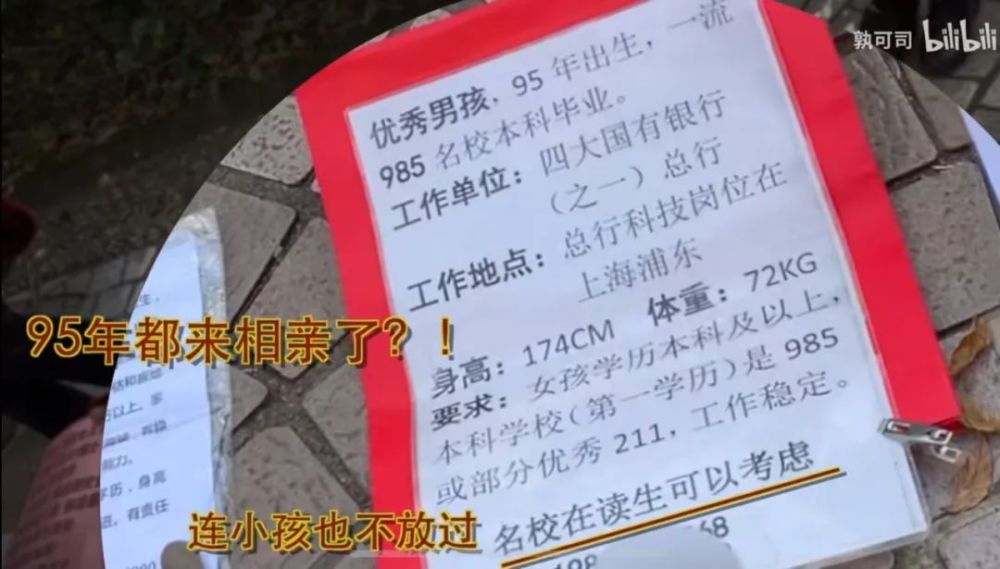 孰可司 bilibili
优秀男孩，95年出生，一流
985名校本科毕业。
工作单位：四大国有银行
（之一）总行
工作地点：总行科技岗位在
上海浦东
身高：174CM 体重：72KG
要求：女孩学历本科及以上，
本科学校（第一学历）是985
或部分优秀211，工作稳定。
名校在读生可以考虑
95年都来相亲了？！
连小孩也不放过
以上，
能力。
学历，身高
有责任